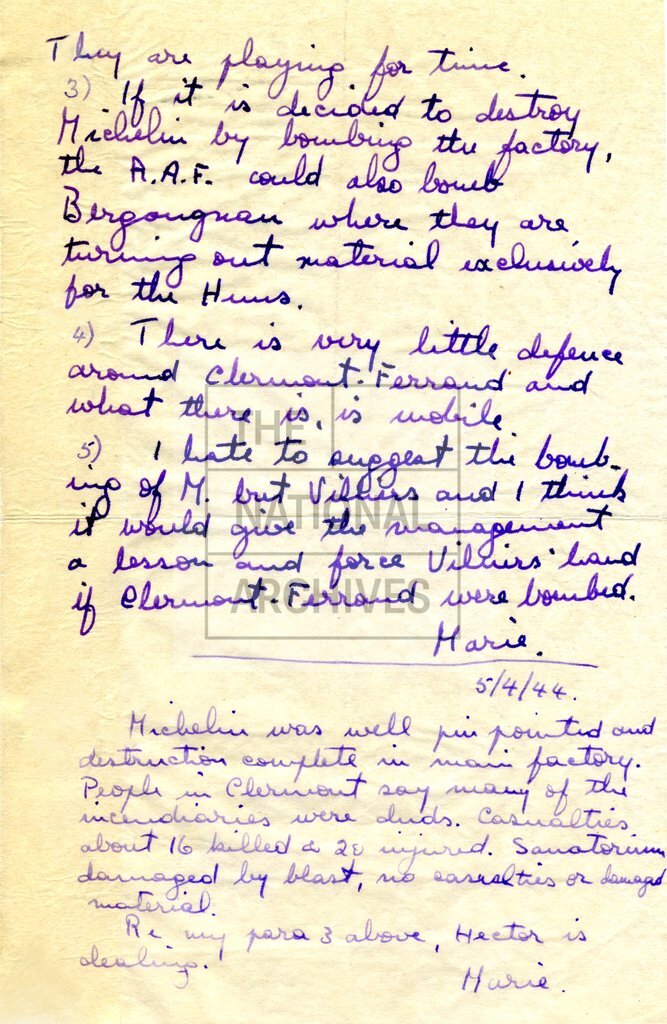 They are playing for time.
3) If it is decided to destroy
Michelin by bombing the factory,
the R.A.F. could also bomb
Bergougnan where they are
turning out material exclusively
for the Huns.
4) There is very little defence
around Clermont-Ferrand and
what there is, is mobile
5) I hate to suggest the bomb-
ing of M. but Villiers and I think
it would give the management
a lesson and force Villiers' hand
if Clermont-Ferrand were bombed.
Marie.
5/4/44.
Michelin was well pin pointed and
destruction complete in main factory.
People in Clermont say many of the
incendiaries were duds. Casualties
about 16 killed & 20 injured. Sanatorium
damaged by blast, no casualties or damaged
material.
Re my para 3 above, Hector is
dealing.
Marie.
THE
NATIONAL
ARCHIVES